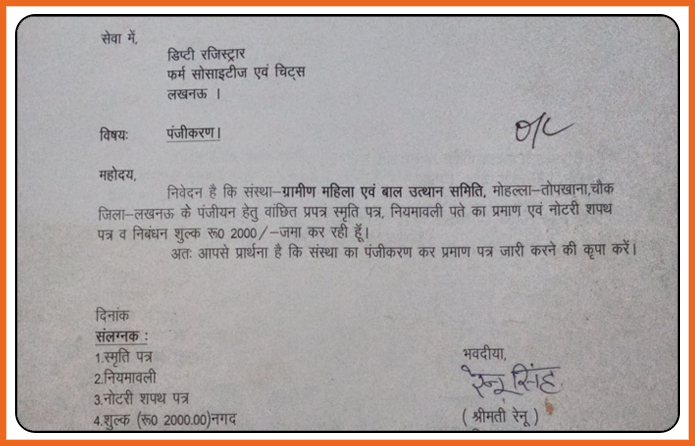 सेवा में,
डिप्टी रजिस्ट्रार
फर्म सोसाइटीज एवं चिट्स
लखनऊ ।
विषयः पंजीकरण।
महोदय,
निवेदन है कि संस्था–ग्रामीण महिला एवं बाल उत्थान समिति, मोहल्ला–तोपखाना,चौक
जिला–लखनऊ के पंजीयन हेतु वांछित प्रपत्र स्मृति पत्र, नियमावली पते का प्रमाण एवं नोटरी शपथ
पत्र व निबंधन शुल्क रू0 2000/–जमा कर रही हूँ।
अतः आपसे प्रार्थना है कि संस्था का पंजीकरण कर प्रमाण पत्र जारी करने की कृपा करें।
दिनांक
संलग्नक :
1.स्मृति पत्र
2.नियमावली
3.नोटरी शपथ पत्र
4.शुल्क (रू0 2000.00)नगद
भवदीया,
रेनू सिंह
( श्रीमती रेनू )